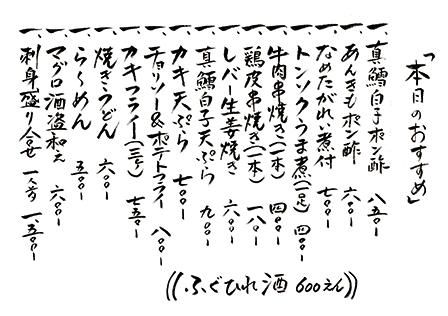 「本日のおすすめ」
一、真鱈白子ポン酢 八五〇ー
一、あんきもポン酢 六〇〇ー
一、なめたがれい煮付 七〇〇ー
一、トンソクうま煮(一足) 四〇〇ー
一、牛肉串焼き(一本) 四〇〇ー
一、鶏皮串焼き(一本) 一八〇ー
一、レバー生姜焼き 六〇〇ー
一、真鱈白子天ぷら 九〇〇ー
一、カキ天ぷら 七〇〇ー
一、チョリソー&ポテトフライ 八〇〇ー
一、カキフライ(三ケ) 七五〇ー
一、焼きうどん 六〇〇ー
一、らーめん 五〇〇ー
一、マグロ酒盗和え 六〇〇ー
一、刺身盛り合せ 一人前 一、五〇〇ー
((ふぐひれ酒 600えん))